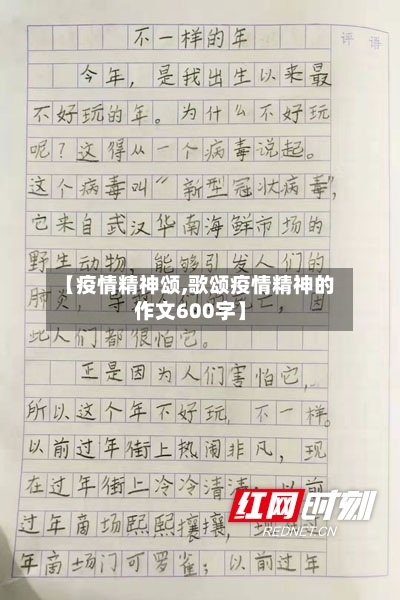 不一样的年
评 语
今年，是我出生以来最
不好玩的年。为什么不好玩
呢？这得从一个病毒说起。
这个病毒叫“新型冠状病毒”，
它来自武汉华南海鲜市场的
野生动物，能够引发人们的
【疫情精神颂,歌颂疫情精神的
作文600字】
肺炎，
亡，因
此人们都很怕它。
正是因为人们害怕它，
所以这个年不好玩，不一样。
以前过年街上热闹非凡，现
在过年街上冷冷清清；以前
红网时刻
REDNET.CN
过年商场熙熙攘攘，
年商场门可罗雀；以前过年